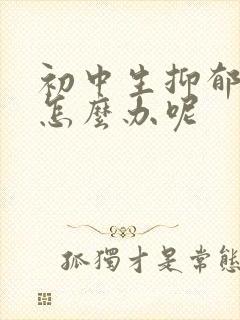 初中生抑郁
怎麼办呢
孤獨才是常態